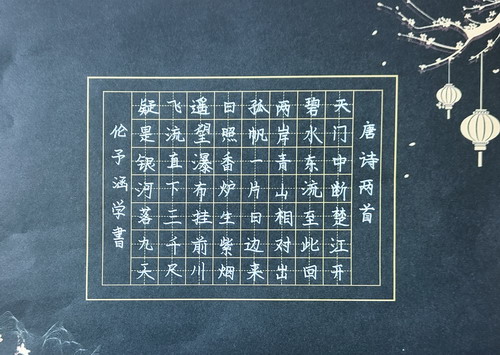 唐诗两首
天门中断楚江开
碧水东流至此回
两岸青山相对出
孤帆一片日边来
日照香炉生紫烟
遥望瀑布挂前川
飞流直下三千尺
疑是银河落九天
伦予涵学書